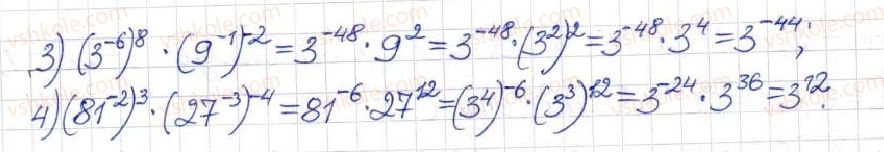 3) (3⁻⁶)⁸ · (9⁻¹)⁻² = 3⁻⁴⁸ · 9² = 3⁻⁴⁸ · (3²)² = 3⁻⁴⁸ · 3⁴ = 3⁻⁴⁴;
4) (81⁻²)³ · (27⁻³)⁻⁴ = 81⁻⁶ · 27¹² = (3⁴)⁻⁶ · (3³)¹² = 3⁻²⁴ · 3³⁶ = 3¹².